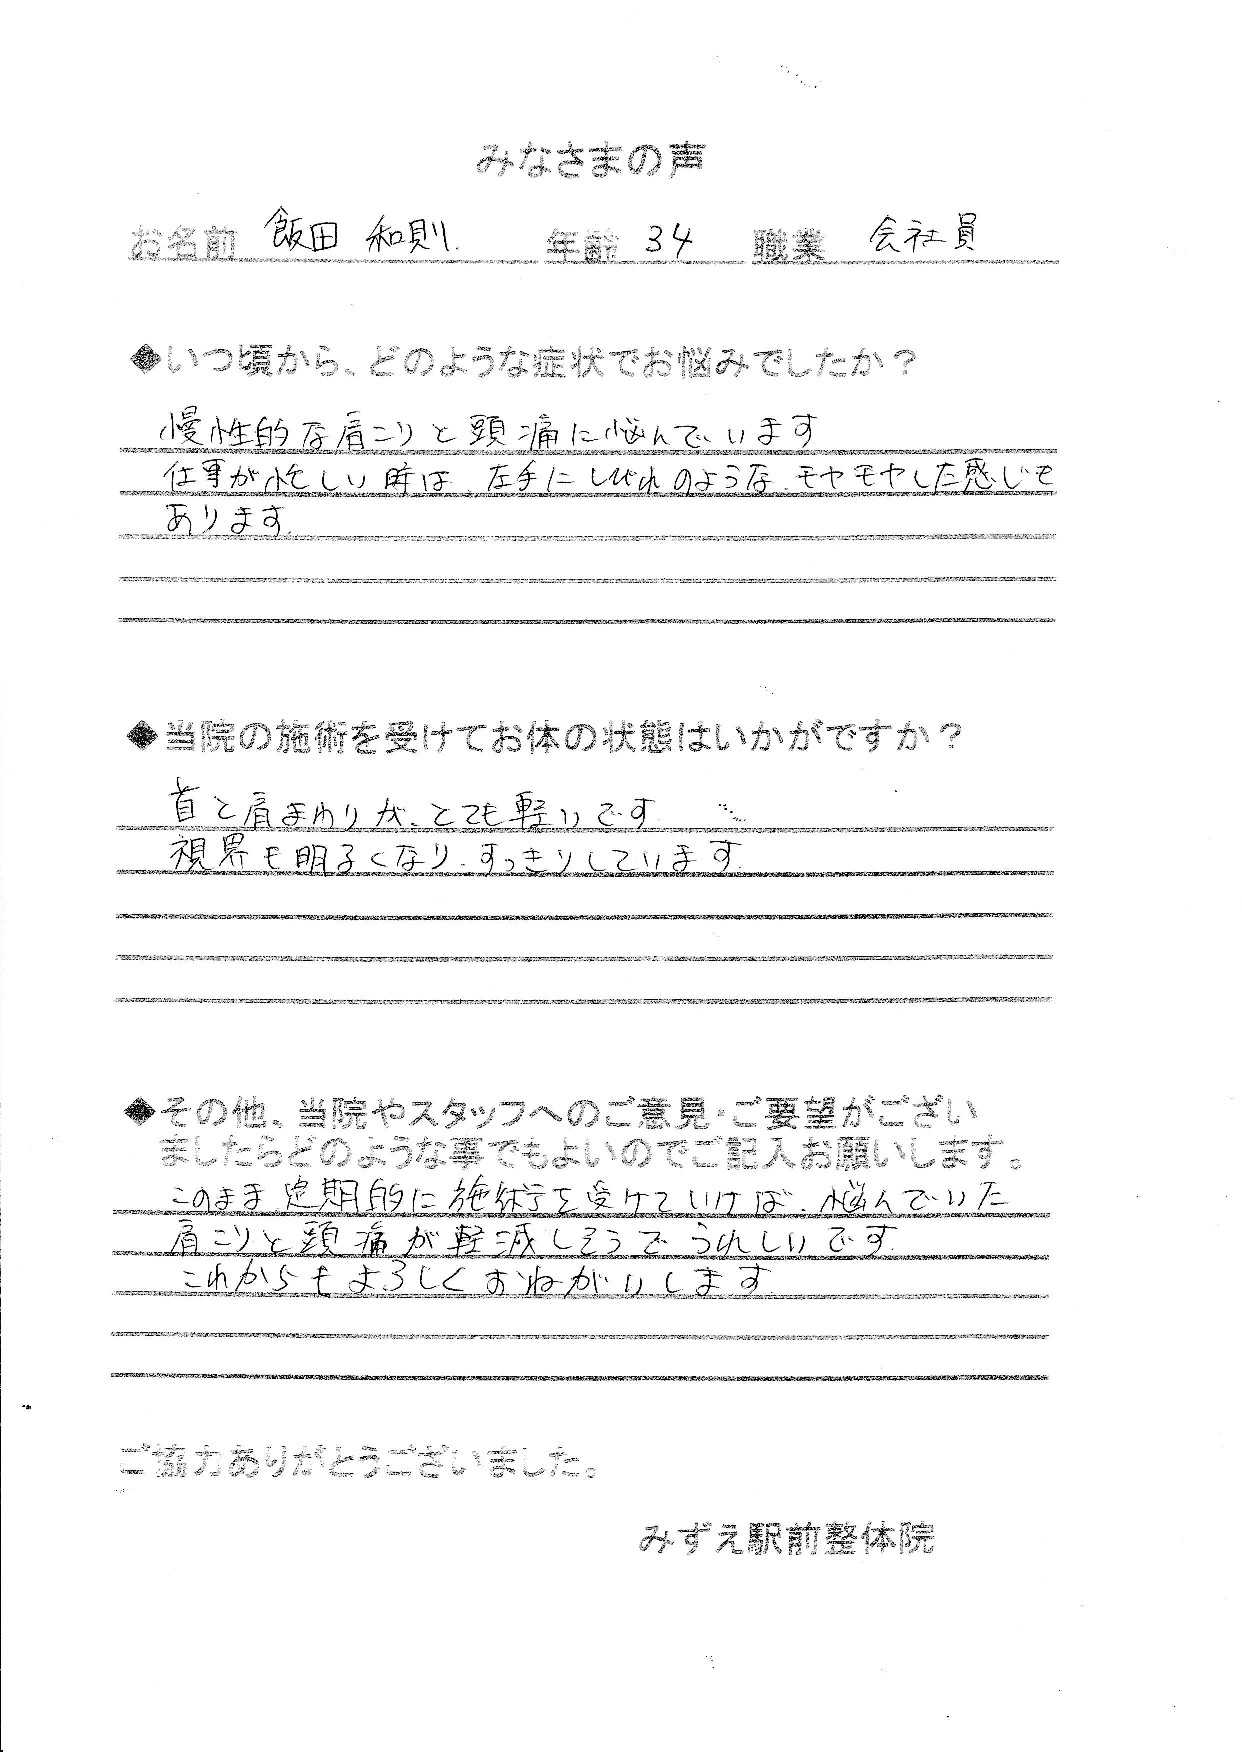 みなさまの声
お名前 飯田 和則. 年齢 34 職業 会社員
◆いつ頃から、どのような症状でお悩みでしたか？
慢性的な肩こりと頭痛に悩んでいます
仕事が忙しい時は、左手にしびれのような、モヤモヤした感じも
あります.
◆当院の施術を受けてお体の状態はいかがですか？
首と肩まわりが、とても軽いです
視界も明るくなり、すっきりしています.
◆その他、当院やスタッフへのご意見・ご要望がござい
ましたらどのような事でもよいのでご記入お願いします。
このまま定期的に施術を受けていけば、悩んでいた
肩こりと頭痛が軽減しそうでうれしいです
これからもよろしくおねがいします
ご協力ありがとうございました。
みずえ駅前整体院